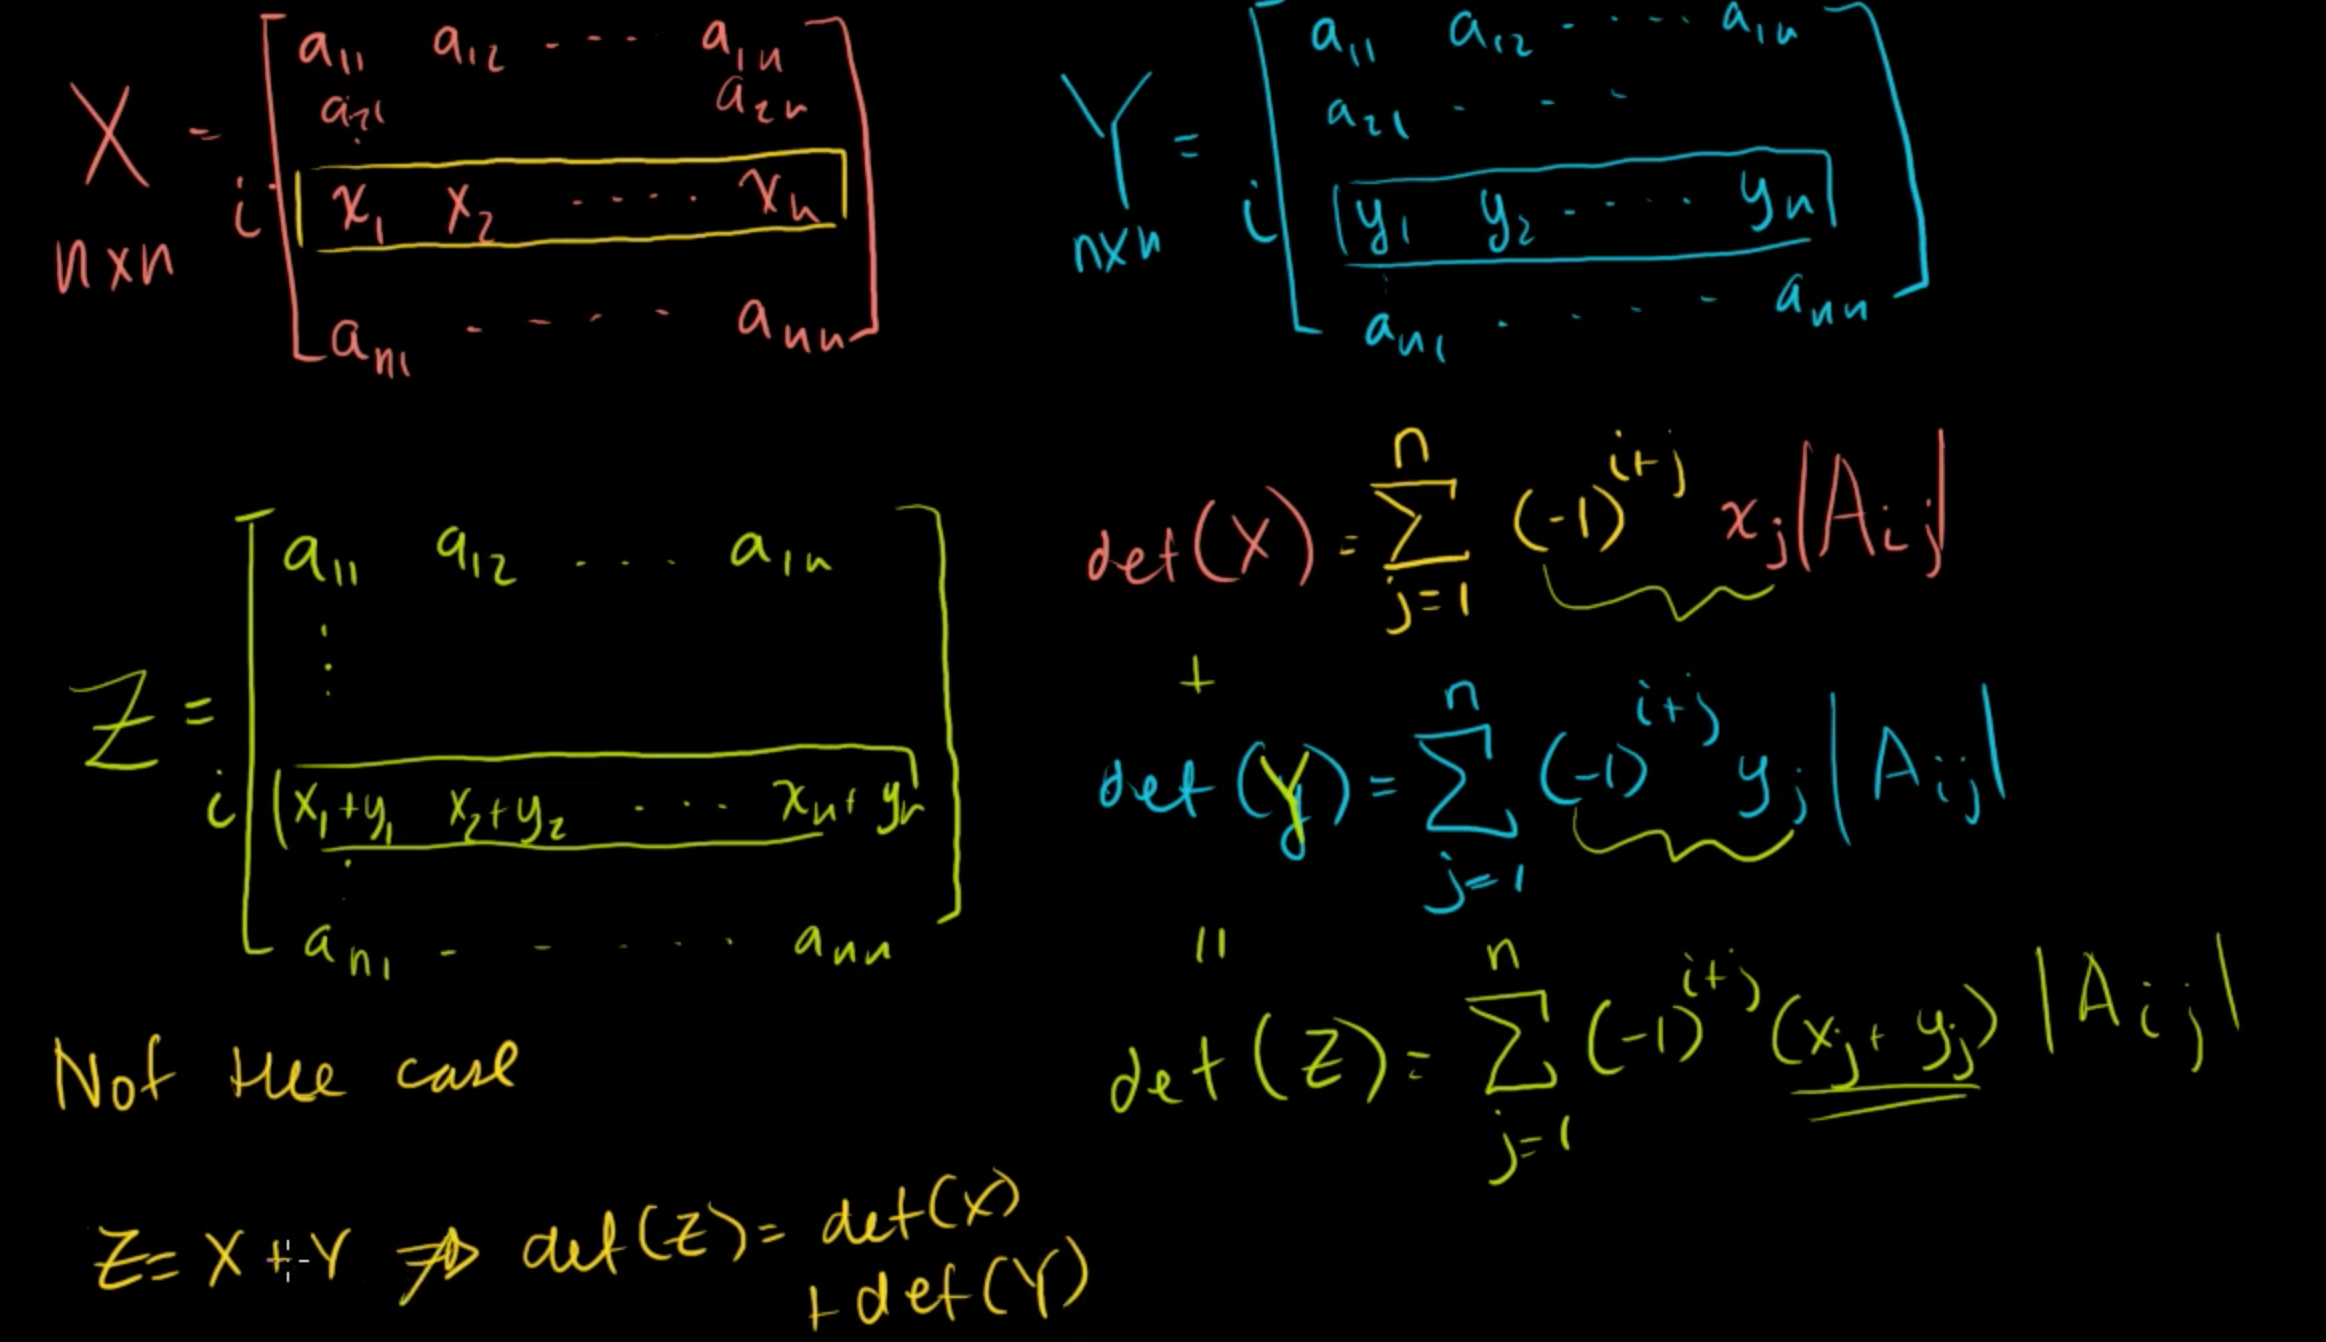 X n×n = i [ a₁₁ a₁₂ - - - - a₁ₙ
a₂₁ a₂ₙ
x₁ x₂ - - - - · xₙ
aₙ₁ - - - - aₙₙ ]
Y n×n = i [ a₁₁ a₁₂ - · - - · a₁ₙ
a₂₁ - - -
y₁ y₂ - - - · · yₙ
aₙ₁ · · · - aₙₙ ]
Z = i [ a₁₁ a₁₂ · · · · a₁ₙ
⋮
x₁+y₁ x₂+y₂ · · · · xₙ+yₙ
aₙ₁ - - · · · aₙₙ ]
det(X) = ∑_{j=1}^{n} (-1)^{i+j} xⱼ |Aᵢⱼ|
+
det(Y) = ∑_{j=1}^{n} (-1)^{i+j} yⱼ |Aᵢⱼ|
=
det(Z) = ∑_{j=1}^{n} (-1)^{i+j} (xⱼ + yⱼ) |Aᵢⱼ|
Not the case
Z = X + Y ⇏ det(Z) = det(X)
+ det(Y)